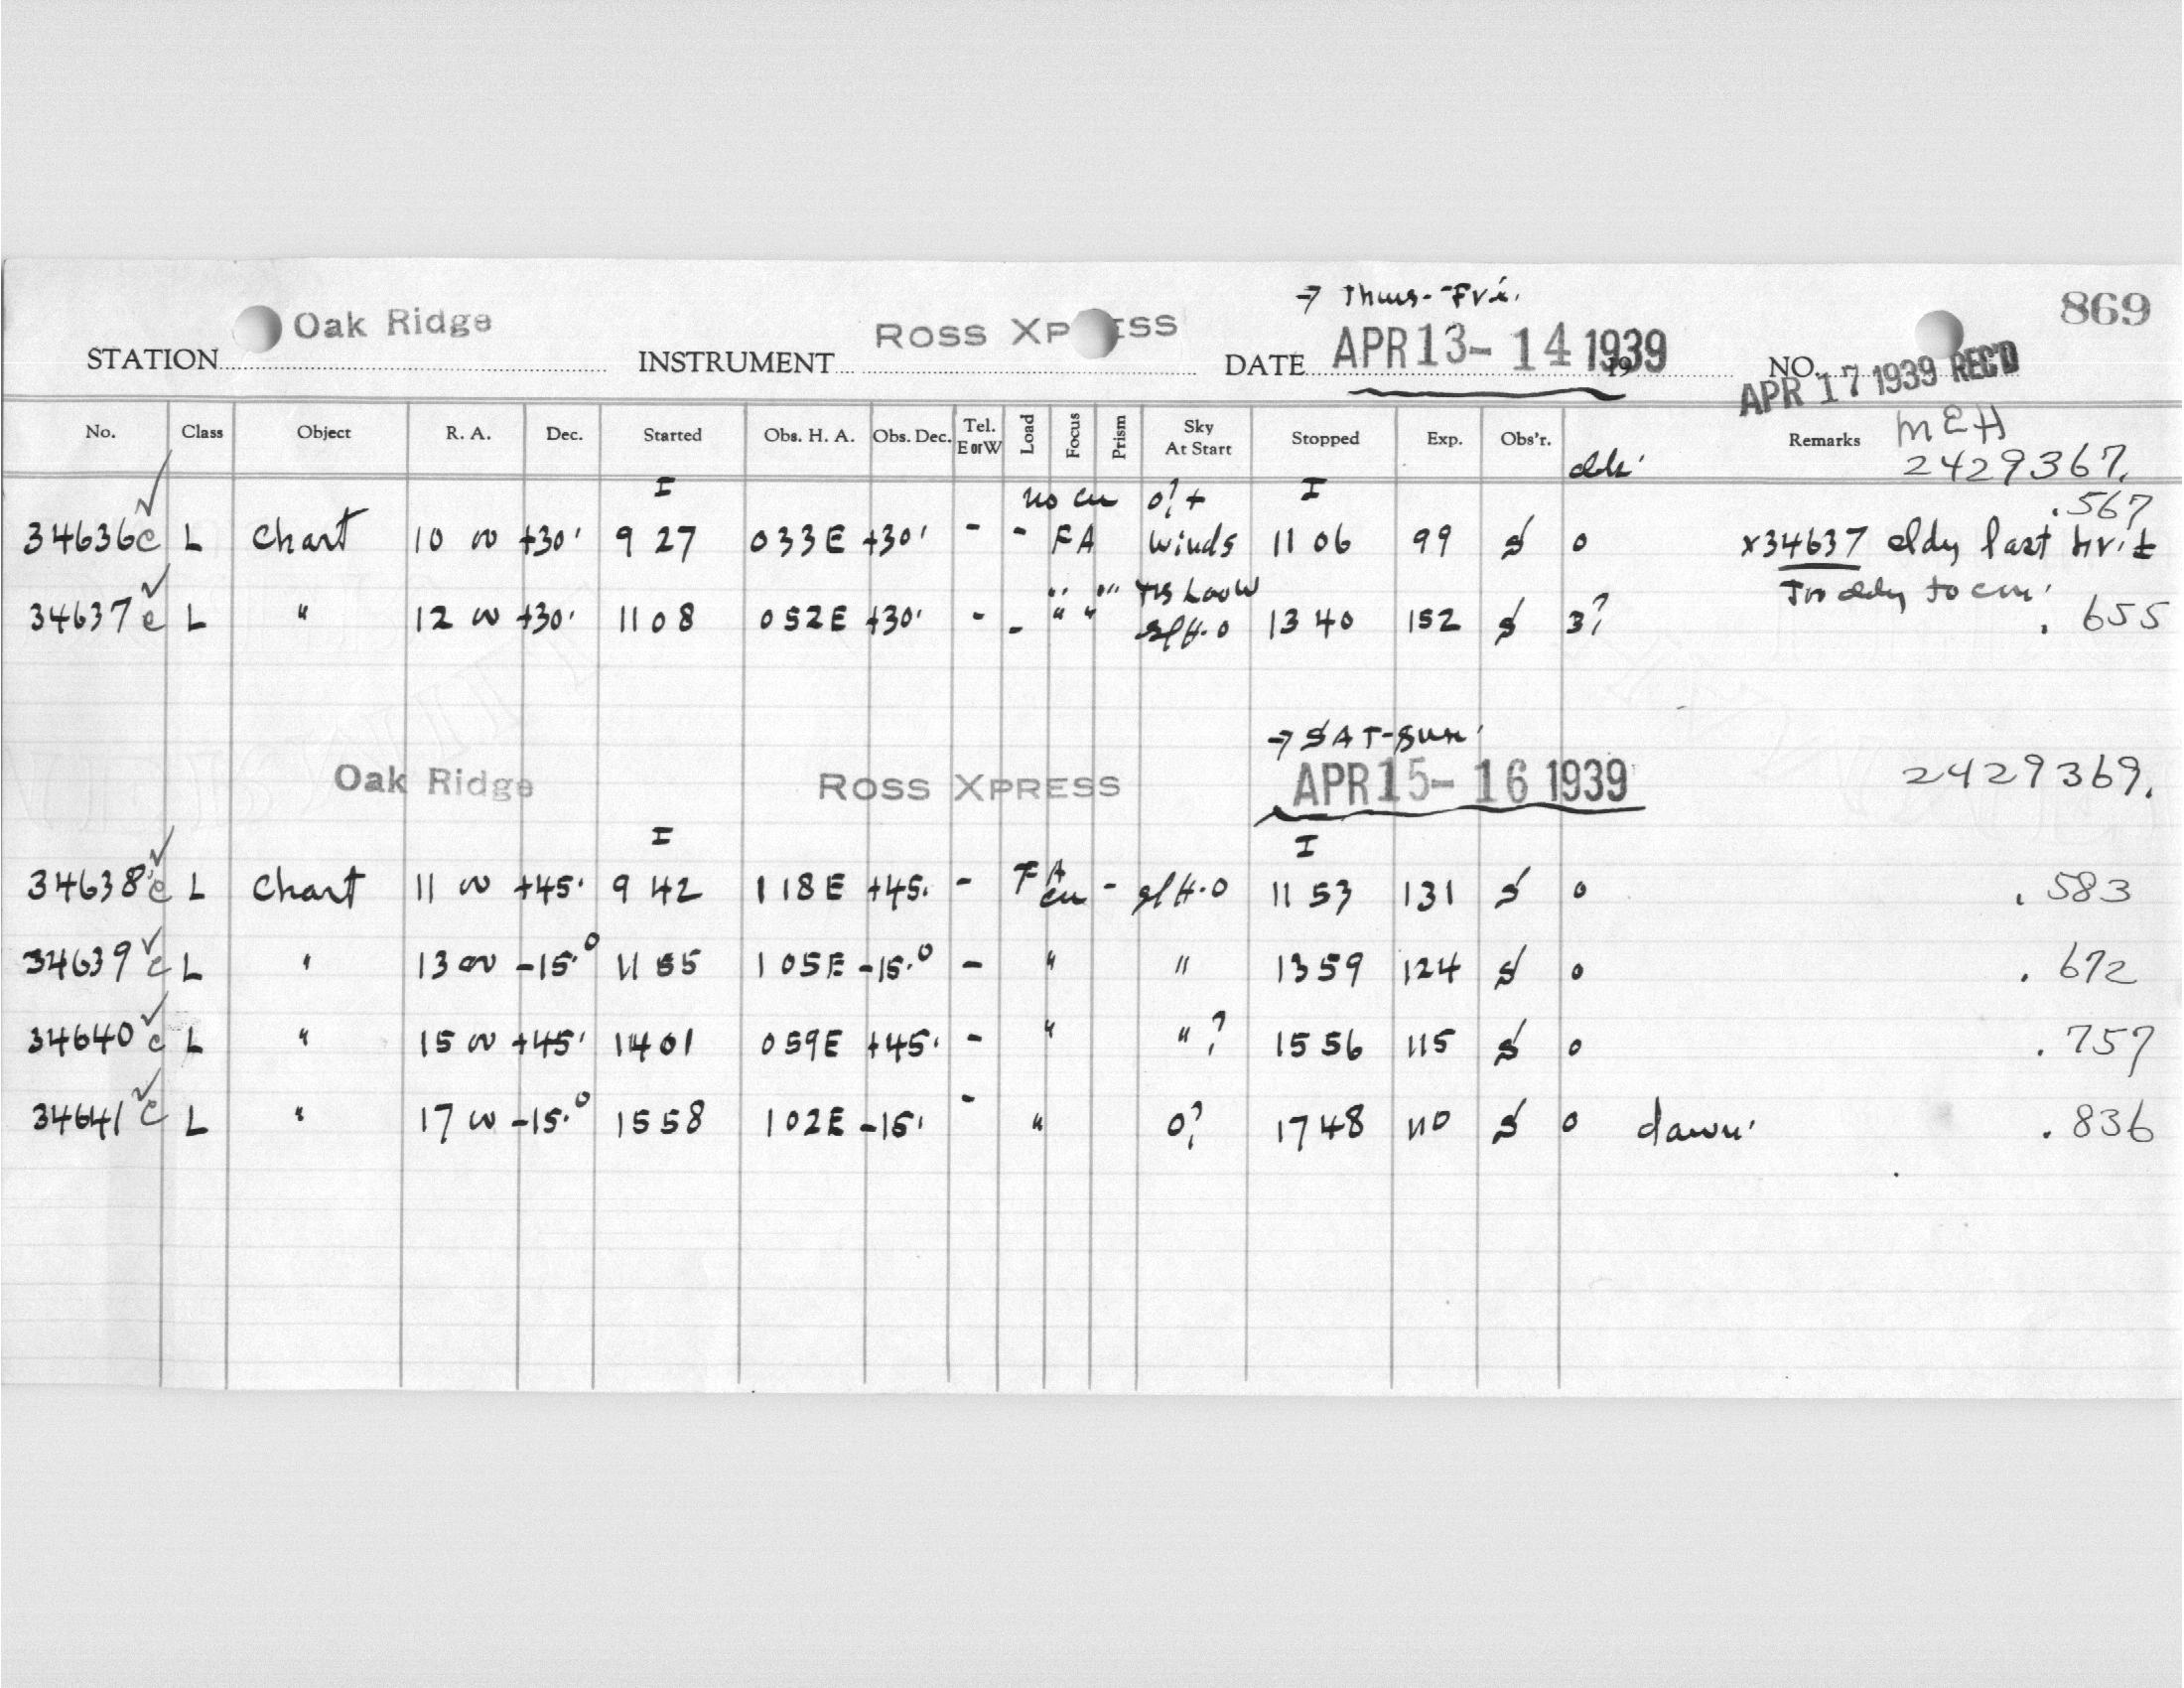 → Thurs-Fri.
869
Oak Ridge ROSS XP ESS APR 13-14 1939
STATION INSTRUMENT DATE 19 NO.
APR 17 1939 REC'D
No. Class Object R. A. Dec. Started Obs. H. A. Obs. Dec. Tel. E or W Load Focus Prism Sky At Start Stopped Exp. Obs'r. Remarks MEH
2429367.
I no cu o?+ I .567
34636c L Chart 10 00 +30' 9 27 033E +30' - - FA winds 11 06 99 S 0 x34637 cldy last hr.±
34637c L " 12 00 +30' 11 08 052E +30' - - " " sl H.O 13 40 152 S 3? Too cldy to cu. .655
→ SAT-Sun.
Oak Ridge ROSS XPRESS APR 15-16 1939 2429369.
I I
34638c L Chart 11 00 +45. 9 42 118E +45. - FA cu - sl H.O 11 53 131 S 0 .583
34639c L " 13 00 -15.° 11 55 105E -15.° - " " 13 59 124 S 0 .672
34640c L " 15 00 +45' 14 01 059E +45. - " " ? 15 56 115 S 0 .757
34641c L " 17 00 -15.° 15 58 102E -15. - " 0? 17 48 110 S 0 dawn. .836